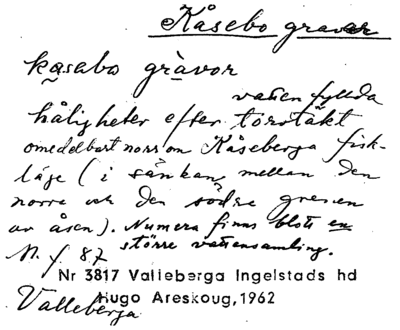 Kåsebo gravor
kasabo gràvor
vatten fyllda
håligheter efter torvtäkt
omedelbart norr om Kåseberga fisk-
läge (i sänkan mellan den
norre och den södre grenen
av åsen). Numera finns blott en
större vattensamling.
M. f. 87
Nr 3817 Valleberga Ingelstads hd
Hugo Areskoug, 1962
Valleberga